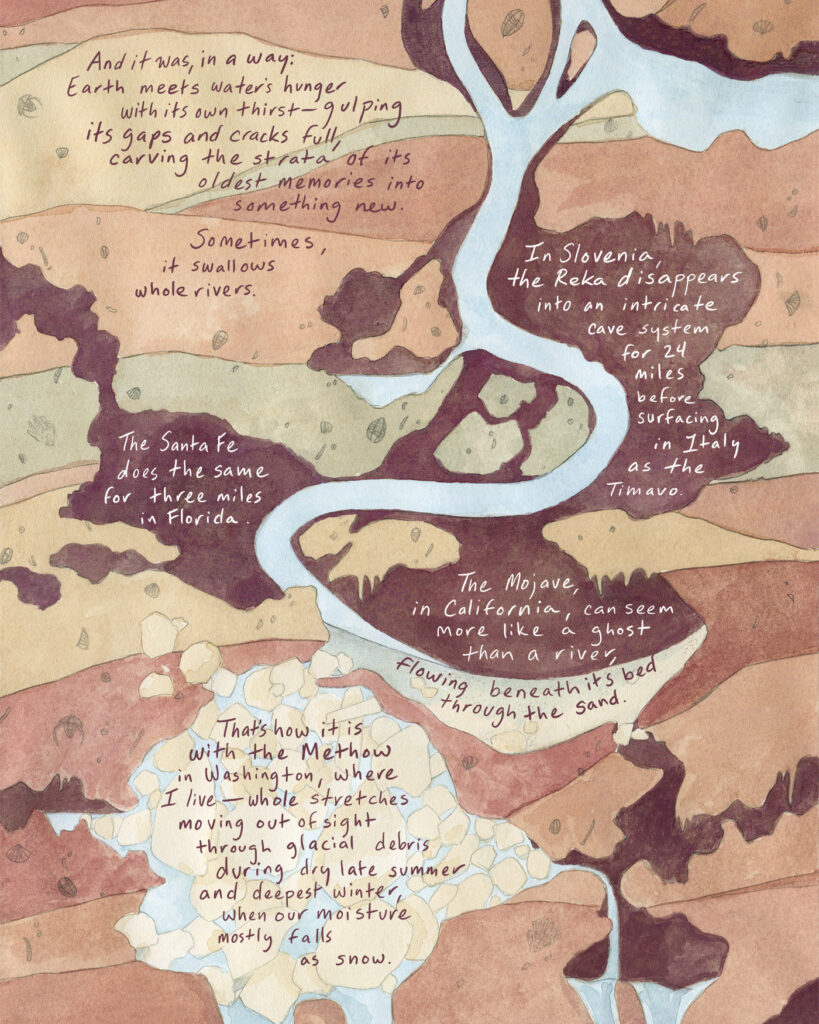 And it was, in a way:
Earth meets water's hunger
with its own thirst—gulping
its gaps and cracks full,
carving the strata of its
oldest memories into
something new.
Sometimes,
it swallows
whole rivers.
In Slovenia,
the Reka disappears
into an intricate
cave system
for 24
miles
before
surfacing
in Italy
as the
Timavo.
The Santa Fe
does the same
for three miles
in Florida.
The Mojave,
in California, can seem
more like a ghost
than a river,
flowing beneath its bed
through the sand.
That's how it is
with the Methow
in Washington, where
I live—whole stretches
moving out of sight
through glacial debris
during dry late summer
and deepest winter,
when our moisture
mostly falls
as snow.